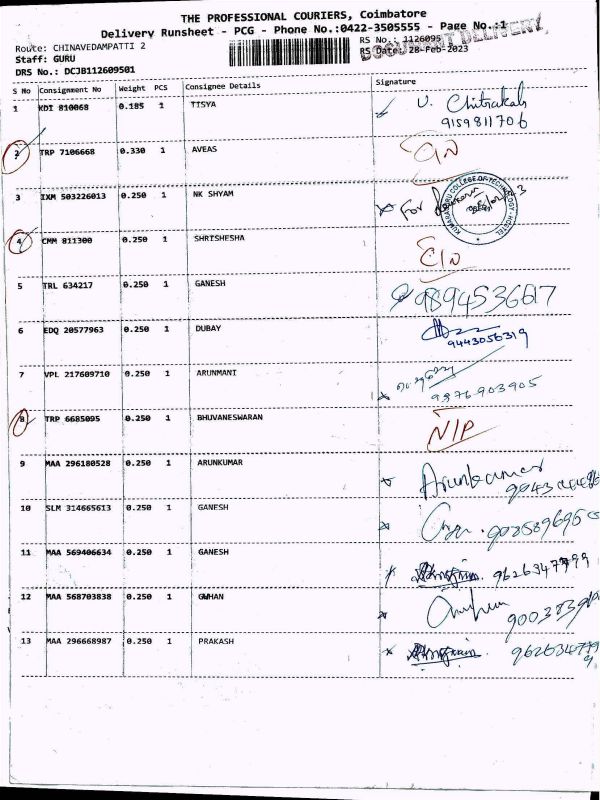 THE PROFESSIONAL COURIERS, Coimbatore
Delivery Runsheet - PCG - Phone No.:0422-3505555 - Page No.:1
Route: CHINAVEDAMPATTI 2
RS No.: 1126095
DOCUMENT DELIVERY
Staff: GURU
RS Date: 28-Feb-2023
DRS No.: DCJB112609501
S No Consignment No Weight PCS Consignee Details Signature
1 KDI 810068 0.185 1 TISYA
9159811706
2 TRP 7106668 0.330 1 AVEAS
3 IXM 503226013 0.250 1 NK SHYAM For
KUMARAGURU COLLEGE OF TECHNOLOGY HOSTEL
4 CMM 811300 0.250 1 SHRISHESHA
5 TRL 634217 0.250 1 GANESH 9894536617
6 EDQ 20577963 0.250 1 DUBAY
9443056319
7 VPL 217609710 0.250 1 ARUNMANI
9876903905
8 TRP 6685095 0.250 1 BHUVANESWARAN N/P
9 MAA 296180528 0.250 1 ARUNKUMAR Arunkumar
10 SLM 314665613 0.250 1 GANESH
11 MAA 569406634 0.250 1 GANESH 9626347799
12 MAA 568703838 0.250 1 GWHAN
13 MAA 296668987 0.250 1 PRAKASH 9626347799